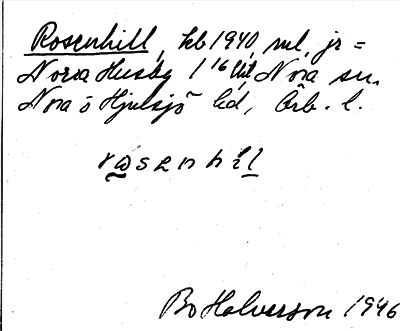 Rosenhill, kb 1940, ml, jr =
Nora Husby 1/16 Nora sn.
Nora o Hjulsjö bd, Örb. l.
rosenhil
Bo Halverson 1946